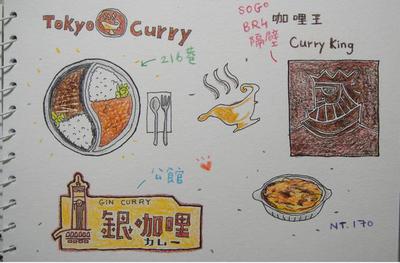 Tokyo Curry
216巷
SOGO
BR4
隔壁
咖哩王
Curry King
公館
GIN CURRY
銀咖哩
カレー
NT.170